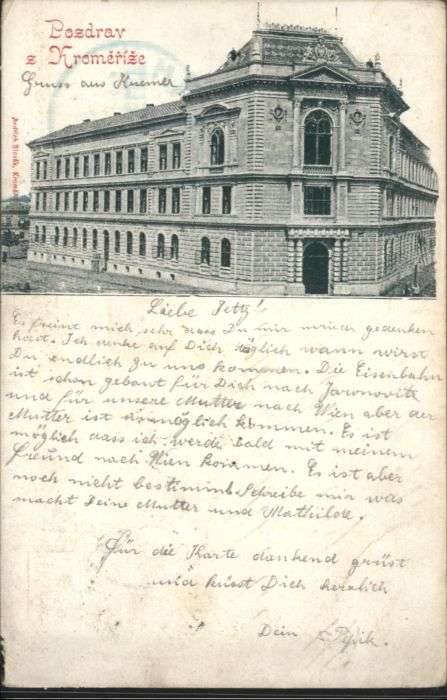 Pozdrav
z Kroměříže
Gruss aus Kremsier
Liebe Jetty!
Es freint mich sehr dass Du mir gedenken
hast. Ich denke auf Dich täglich wann wirst
Du endlich zu uns kommen. Die Eisenbahn
ist schon gebaut für Dich nach Jaronovitz
und für unsere Mutter nach Wien aber der
Mutter ist unmöglich kommen. Es ist
möglich dass ich werde bald mit meinem
Freund nach Wien kommen. Es ist aber
noch nicht bestimmt. Schreibe mir was
macht Deine Mutter und Mathilde.
Für die Karte dankend grüst
und küsst Dich herzlich
Dein